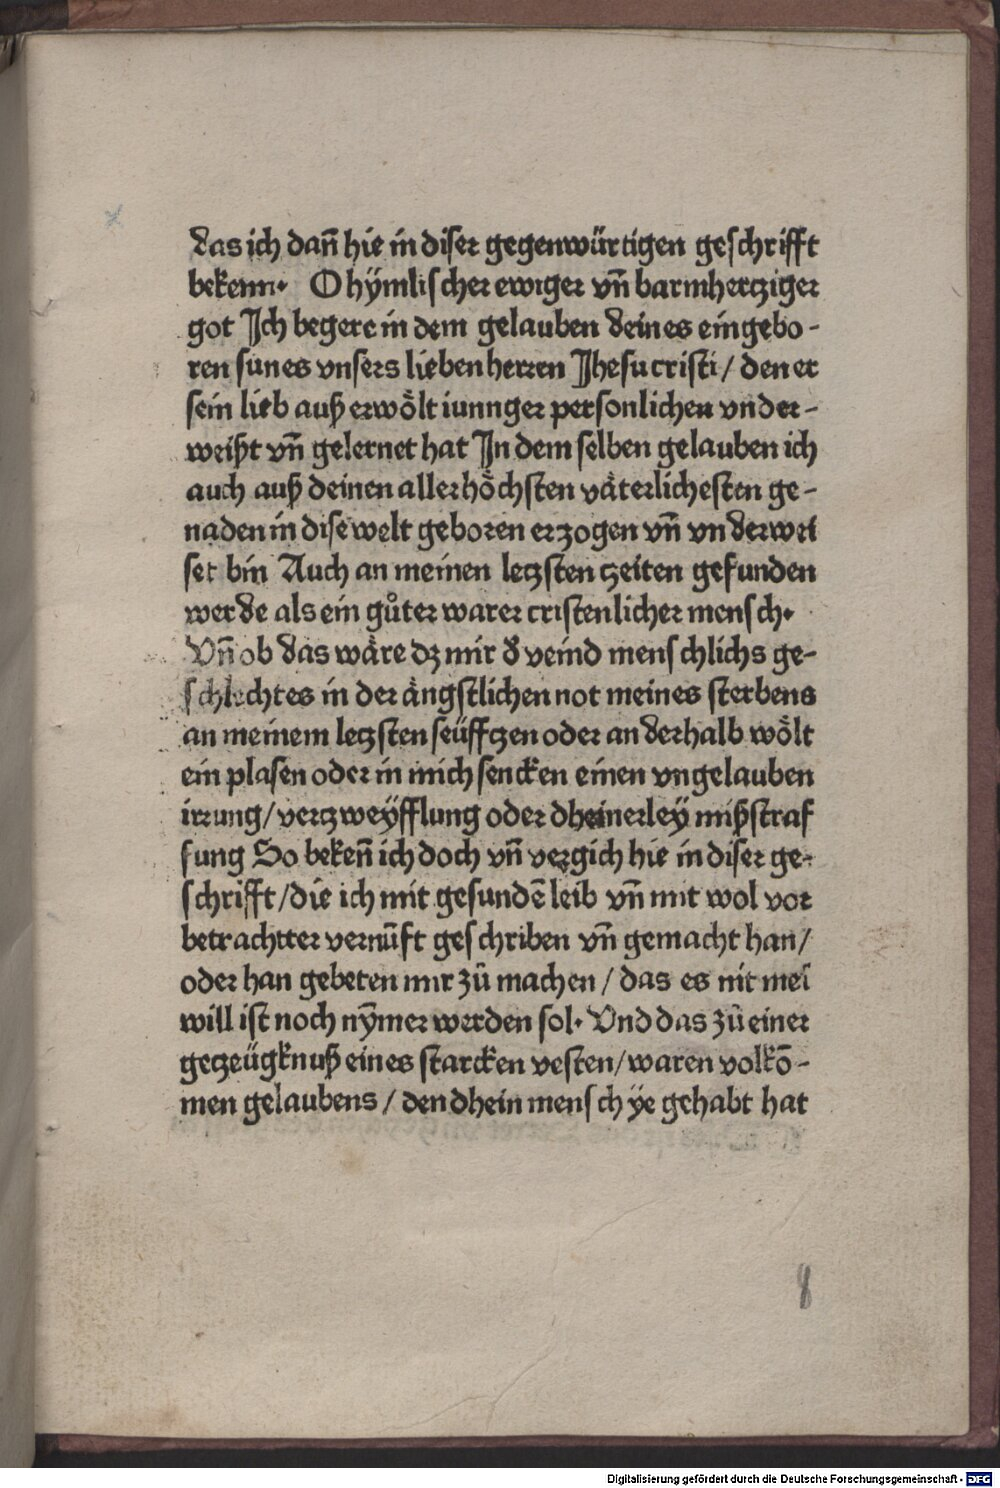 das ich dañ hie in diser gegenwürtigen geschrifft
bekenn· O hÿmlischer ewiger vñ barmhertziger
got Jch begere in dem gelauben deines eingebo-
ren sunes vnsers lieben herren Jhesu cristi/ den er
sein lieb auß erwölt iunnger personlichen vnder-
weißt vñ gelernet hat Jn dem selben gelauben ich
auch auß deinen aller höchsten väterlichesten ge-
naden in dise welt geboren erzogen vñ vnderwei
set bin Auch an meinen letzsten tzeiten gefunden
werde als ein gůter warer cristenlicher mensch·
Vñ ob das wäre dz mir d' veind menschlichs ge-
schlechtes in der ängstlichen not meines sterbens
an meinem letzsten seüfftzen oder anderhalb wölt
ein plasen oder in mich sencken einen vngelauben
irrung/ vertzweÿfflung oder dheinerleÿ mißstraf
fung So bekeñ ich doch vñ vergich hie in diser ge-
schrifft/die ich mit gesundē leib vñ mit wol vor
betrachtter vernũft geschriben vñ gemacht han/
oder han gebeten mir zů machen/ das es nit meī
will ist noch nÿmer werden sol· Vnd das zů einer
getzeügknuß eines starcken vesten/waren volkō-
men gelaubens/ den dhein mensch ÿe gehabt hat
8
Digitalisierung gefördert durch die Deutsche Forschungsgemeinschaft - DFG